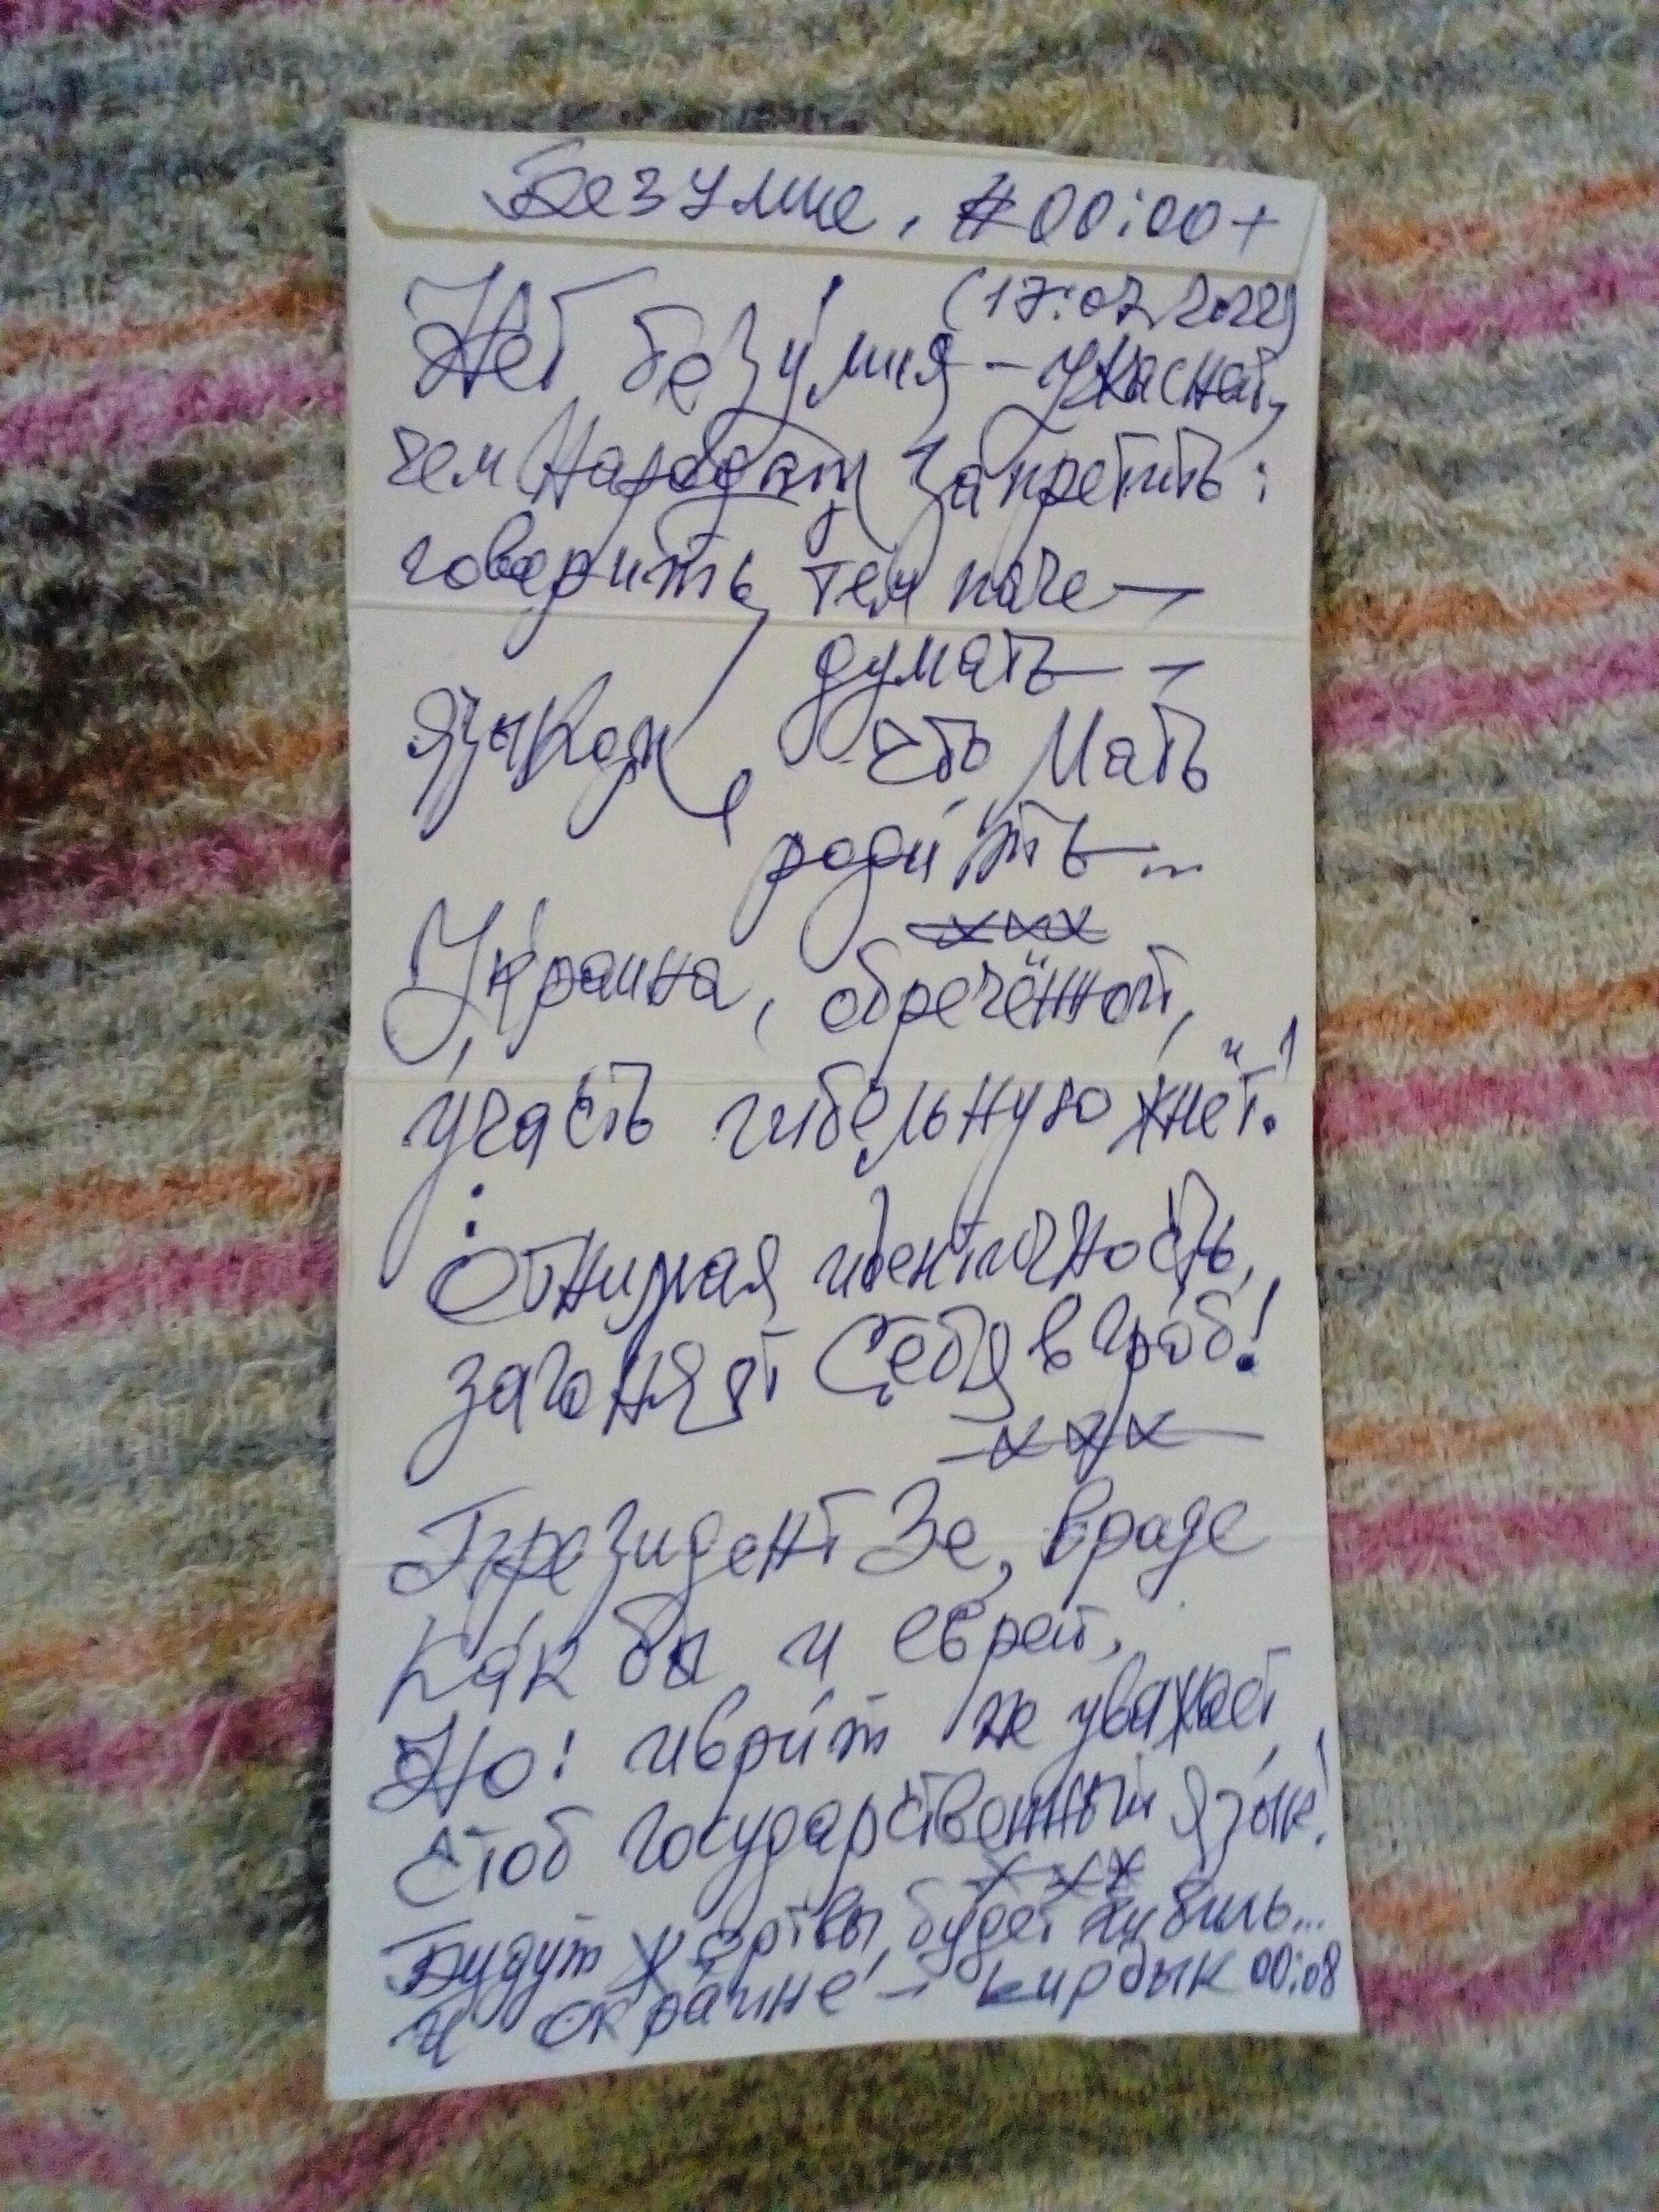 Безумие, #00:00+
(17.07.2022)
Нет безумия – ужасней,
чем Народам запретить:
говорить, тем паче –
думать –
языком, Мать
родить...
ххх
Украина, обречённой,
участь гибельную жнёт!
:
Отнимая идентичность,
загоняят Себя в гроб!
ххх
Президент Зе, вроде
как бы и еврей,
Но! иврит не уважает
стоб государственный язык!
ххх
Будут жертвы, будет гибель...
и окраине – кирдык 00:08